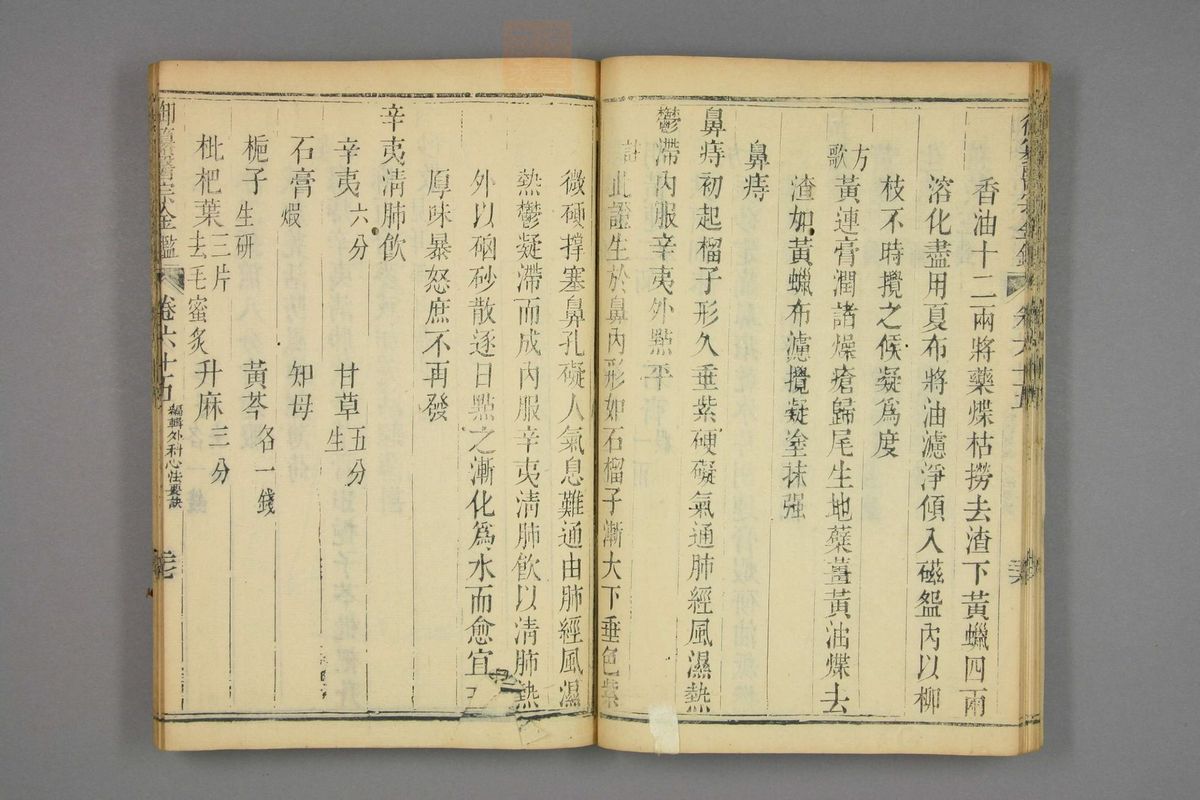 香油十二兩將藥煠枯撈去渣下黃蠟四兩
溶化盡用夏布將油濾淨傾入磁盌內以柳
枝不時攪之候凝爲度
方歌
黃連膏潤諸燥瘡歸尾生地蘗薑黃油煠去
渣加黃蠟布濾攪凝塗抹强
鼻痔
鼻痔初起榴子形久垂紫硬礙氣通肺經風濕熱
鬱滯內服辛夷外點平
註
此證生於鼻內形如石榴子漸大下垂色紫
微硬撑塞鼻孔礙人氣息難通由肺經風濕
熱鬱凝滯而成內服辛夷淸肺飮以淸肺熱
外以硇砂散逐日點之漸化爲水而愈宜
厚味暴怒庶不再發
辛夷淸肺飮
辛夷六分 甘草五分生
石膏煆 知母
梔子生研 黃芩各一錢
枇杷葉三片去毛蜜炙 升麻三分
御纂醫宗金鑑 卷六十五 編輯外科心法要訣